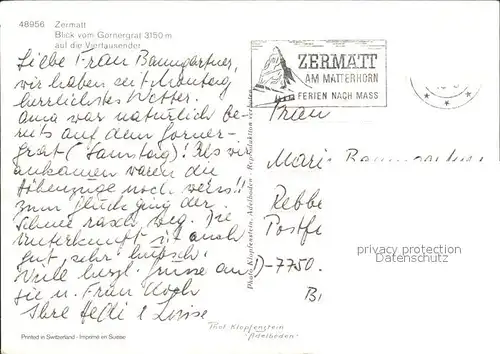 48956 Zermatt
Blick vom Gornergrat 3150 m
auf die Viertausender
Liebe Frau Baumgartner,
wir haben seit Montag
herrlichstes Wetter.
Anna war natürlich be-
reits auf dem Gorner-
grat (Samstag)! Als wir
ankamen waren die
Höhenzüge noch weiss!!
Zum Glück ging der
Schnee rasch weg. Die
Unterkunft ist auch
gut, sehr hübsch.
Viele herzl. Grüsse an
Sie u. Frau Koch
Ihre Hedi & Louise
Printed in Switzerland · Imprimé en Suisse
ZERMATT
AM MATTERHORN
FERIEN NACH MASS
Photo Klopfenstein, Adelboden - Reproduktion verboten
Frau
Maria Baumgartner
Rebbe
Postf
D-7750
privacy protection
oldthing.de
Phot Klopfenstein
"Adelboden"